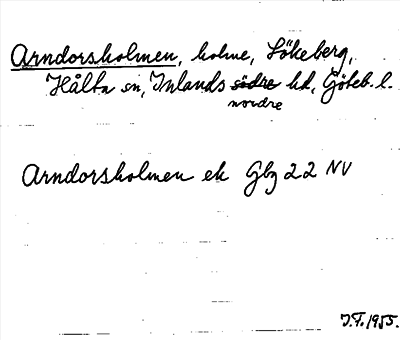 Arndorsholmen, holme, Lökeberg,
Hålta sn, Inlands södre hd, Göteb. l.
nordre
Arndorsholmen ek Gbg 22 NV
J.F. 1955.